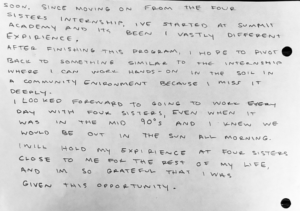 SOON. SINCE MOVING ON FROM THE FOUR
SISTERS INTERNSHIP, IVE STARTED AT SUMMIT
ACADEMY AND ITS BEEN A VASTLY DIFFERENT
EXPIRIENCE.
AFTER FINISHING THIS PROGRAM, I HOPE TO PIVOT
BACK TO SOMETHING SIMILAR TO THE INTERNSHIP
WHERE I CAN WORK HANDS-ON IN THE SOIL IN
A COMMUNITY ENIRONMENT BECAUSE I MISS IT
DEEPLY.
I LOOKED FOREWARD TO GOING TO WORK EVERY
DAY WITH FOUR SISTERS, EVEN WHEN IT
WAS IN THE MID 90'S AND I KNEW WE
WOULD BE OUT IN THE SUN ALL MORNING.
I WILL HOLD MY EXPIRIENCE AT FOUR SISTERS
CLOSE TO ME FOR THE REST OF MY LIFE,
AND IM SO GRATEFUL THAT I WAS
GIVEN THIS OPPORTUNITY.